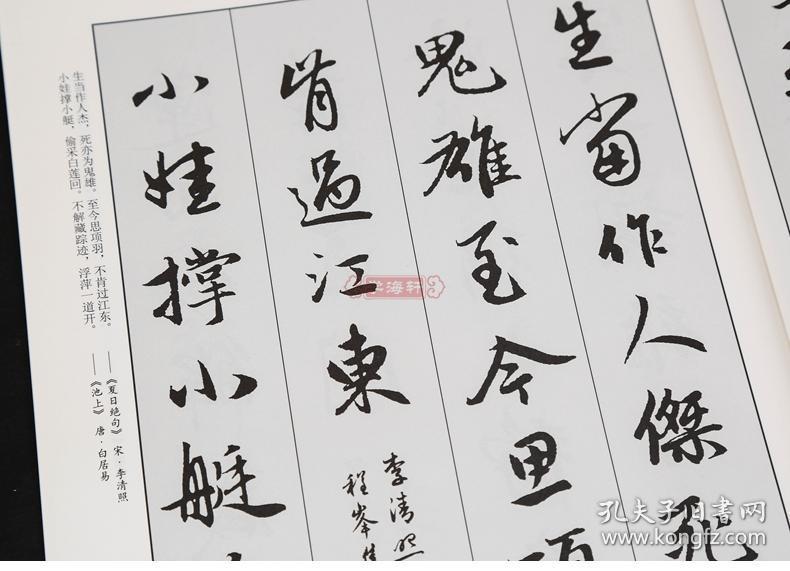 生當作人傑死
鬼雄至今思項
肯過江東
李清照
程峰集
小娃撑小艇
生当作人杰，死亦为鬼雄。至今思项羽，不肯过江东。
——《夏日绝句》 宋·李清照
小娃撑小艇，偷采白莲回。不解藏踪迹，浮萍一道开。
——《池上》 唐·白居易
海轩
孔夫子旧书网
www.kongfz.com